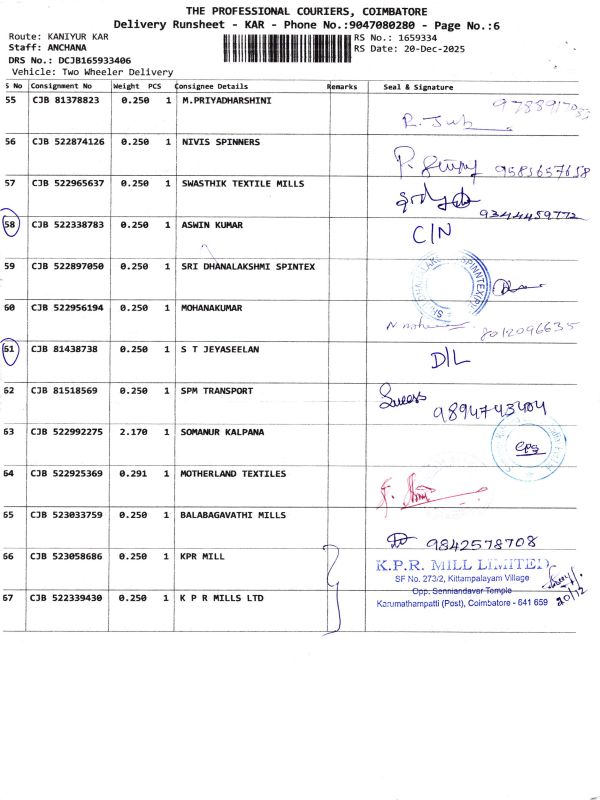 THE PROFESSIONAL COURIERS, COIMBATORE
Delivery Runsheet - KAR - Phone No.:9047080280 - Page No.:6
Route: KANIYUR KAR RS No.: 1659334
Staff: ANCHANA RS Date: 20-Dec-2025
DRS No.: DCJB165933406
Vehicle: Two Wheeler Delivery
S No Consignment No Weight PCS Consignee Details Remarks Seal & Signature
55 CJB 81378823 0.250 1 M.PRIYADHARSHINI
56 CJB 522874126 0.250 1 NIVIS SPINNERS 9585657658
57 CJB 522965637 0.250 1 SWASTHIK TEXTILE MILLS 9344459772
58 CJB 522338783 0.250 1 ASWIN KUMAR C/N
59 CJB 522897050 0.250 1 SRI DHANALAKSHMI SPINTEX
60 CJB 522956194 0.250 1 MOHANAKUMAR 8012096635
61 CJB 81438738 0.250 1 S T JEYASEELAN D/L
62 CJB 81518569 0.250 1 SPM TRANSPORT 9894743404
63 CJB 522992275 2.170 1 SOMANUR KALPANA
64 CJB 522925369 0.291 1 MOTHERLAND TEXTILES
65 CJB 523033759 0.250 1 BALABAGAVATHI MILLS 9842578708
66 CJB 523058686 0.250 1 KPR MILL
K.P.R. MILL LIMITED
SF No. 273/2, Kittampalayam Village
Opp. Senniandavar Temple
67 CJB 522339430 0.250 1 K P R MILLS LTD
Karumathampatti (Post), Coimbatore - 641 659 20/12